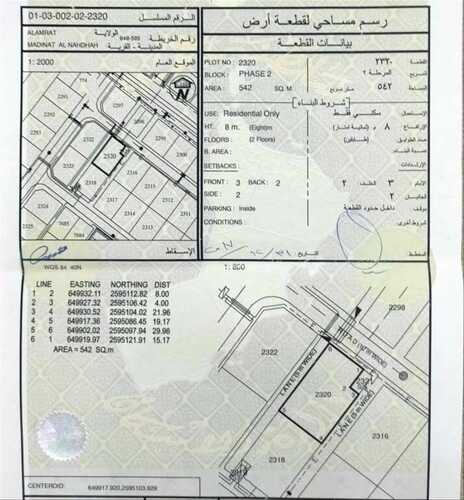 01-03-002-02-2320 الرقم المسلسل
رسم مساحي لقطعة أرض
ALAMRAT الولاية
رقم الخريطة
MADINAT AL NAHDHAH المدينة - القرية
بيانات القطعة
1: 2000 الموقع العام
PLOT NO : 2320 ٢٣٢٠ القطعة
BLOCK : PHASE 2 المرحلة ٢ المربع
AREA : 542 SQ. M متر مربع ٥٤٢ المساحة
شروط البناء
USE: Residential Only سكني فقط الإستعمال
HT. 8 m. (Eightm) ٨ م (ثمانية امتار) الارتفاع
FLOORS : (2 Floors) (طابقين) عدد الطوابق
B. AREA : نسبة البناء
SETBACKS الإرتدادات
FRONT : 3 BACK : 2 ٢ الخلف ٣ الأمام
SIDE : 2 ٢ الجانبان
PARKING : Inside داخل حدود القطعة موقف
CONDITIONS شروط أخرى
التاريخ
المخطط
2294
2322
2320
2318
2316
2321
2319
2317
2315
2313
7684
2292
N
الإسقاط
WGS 84 40N
1: 800
LINE EASTING NORTHING DIST
1 2 649932.11 2595112.82 8.00
2 3 649927.32 2595106.42 4.00
3 4 649930.52 2595104.02 21.96
4 5 649917.36 2595086.45 19.17
5 6 649902.02 2595097.94 29.96
6 1 649919.97 2595121.91 15.17
AREA = 542 SQ.m
2298
2322
2320
2318
2316
LANE (5 m WIDE)
LANE (5 m WIDE)
CENTEROID: 649917.920,2595103.929